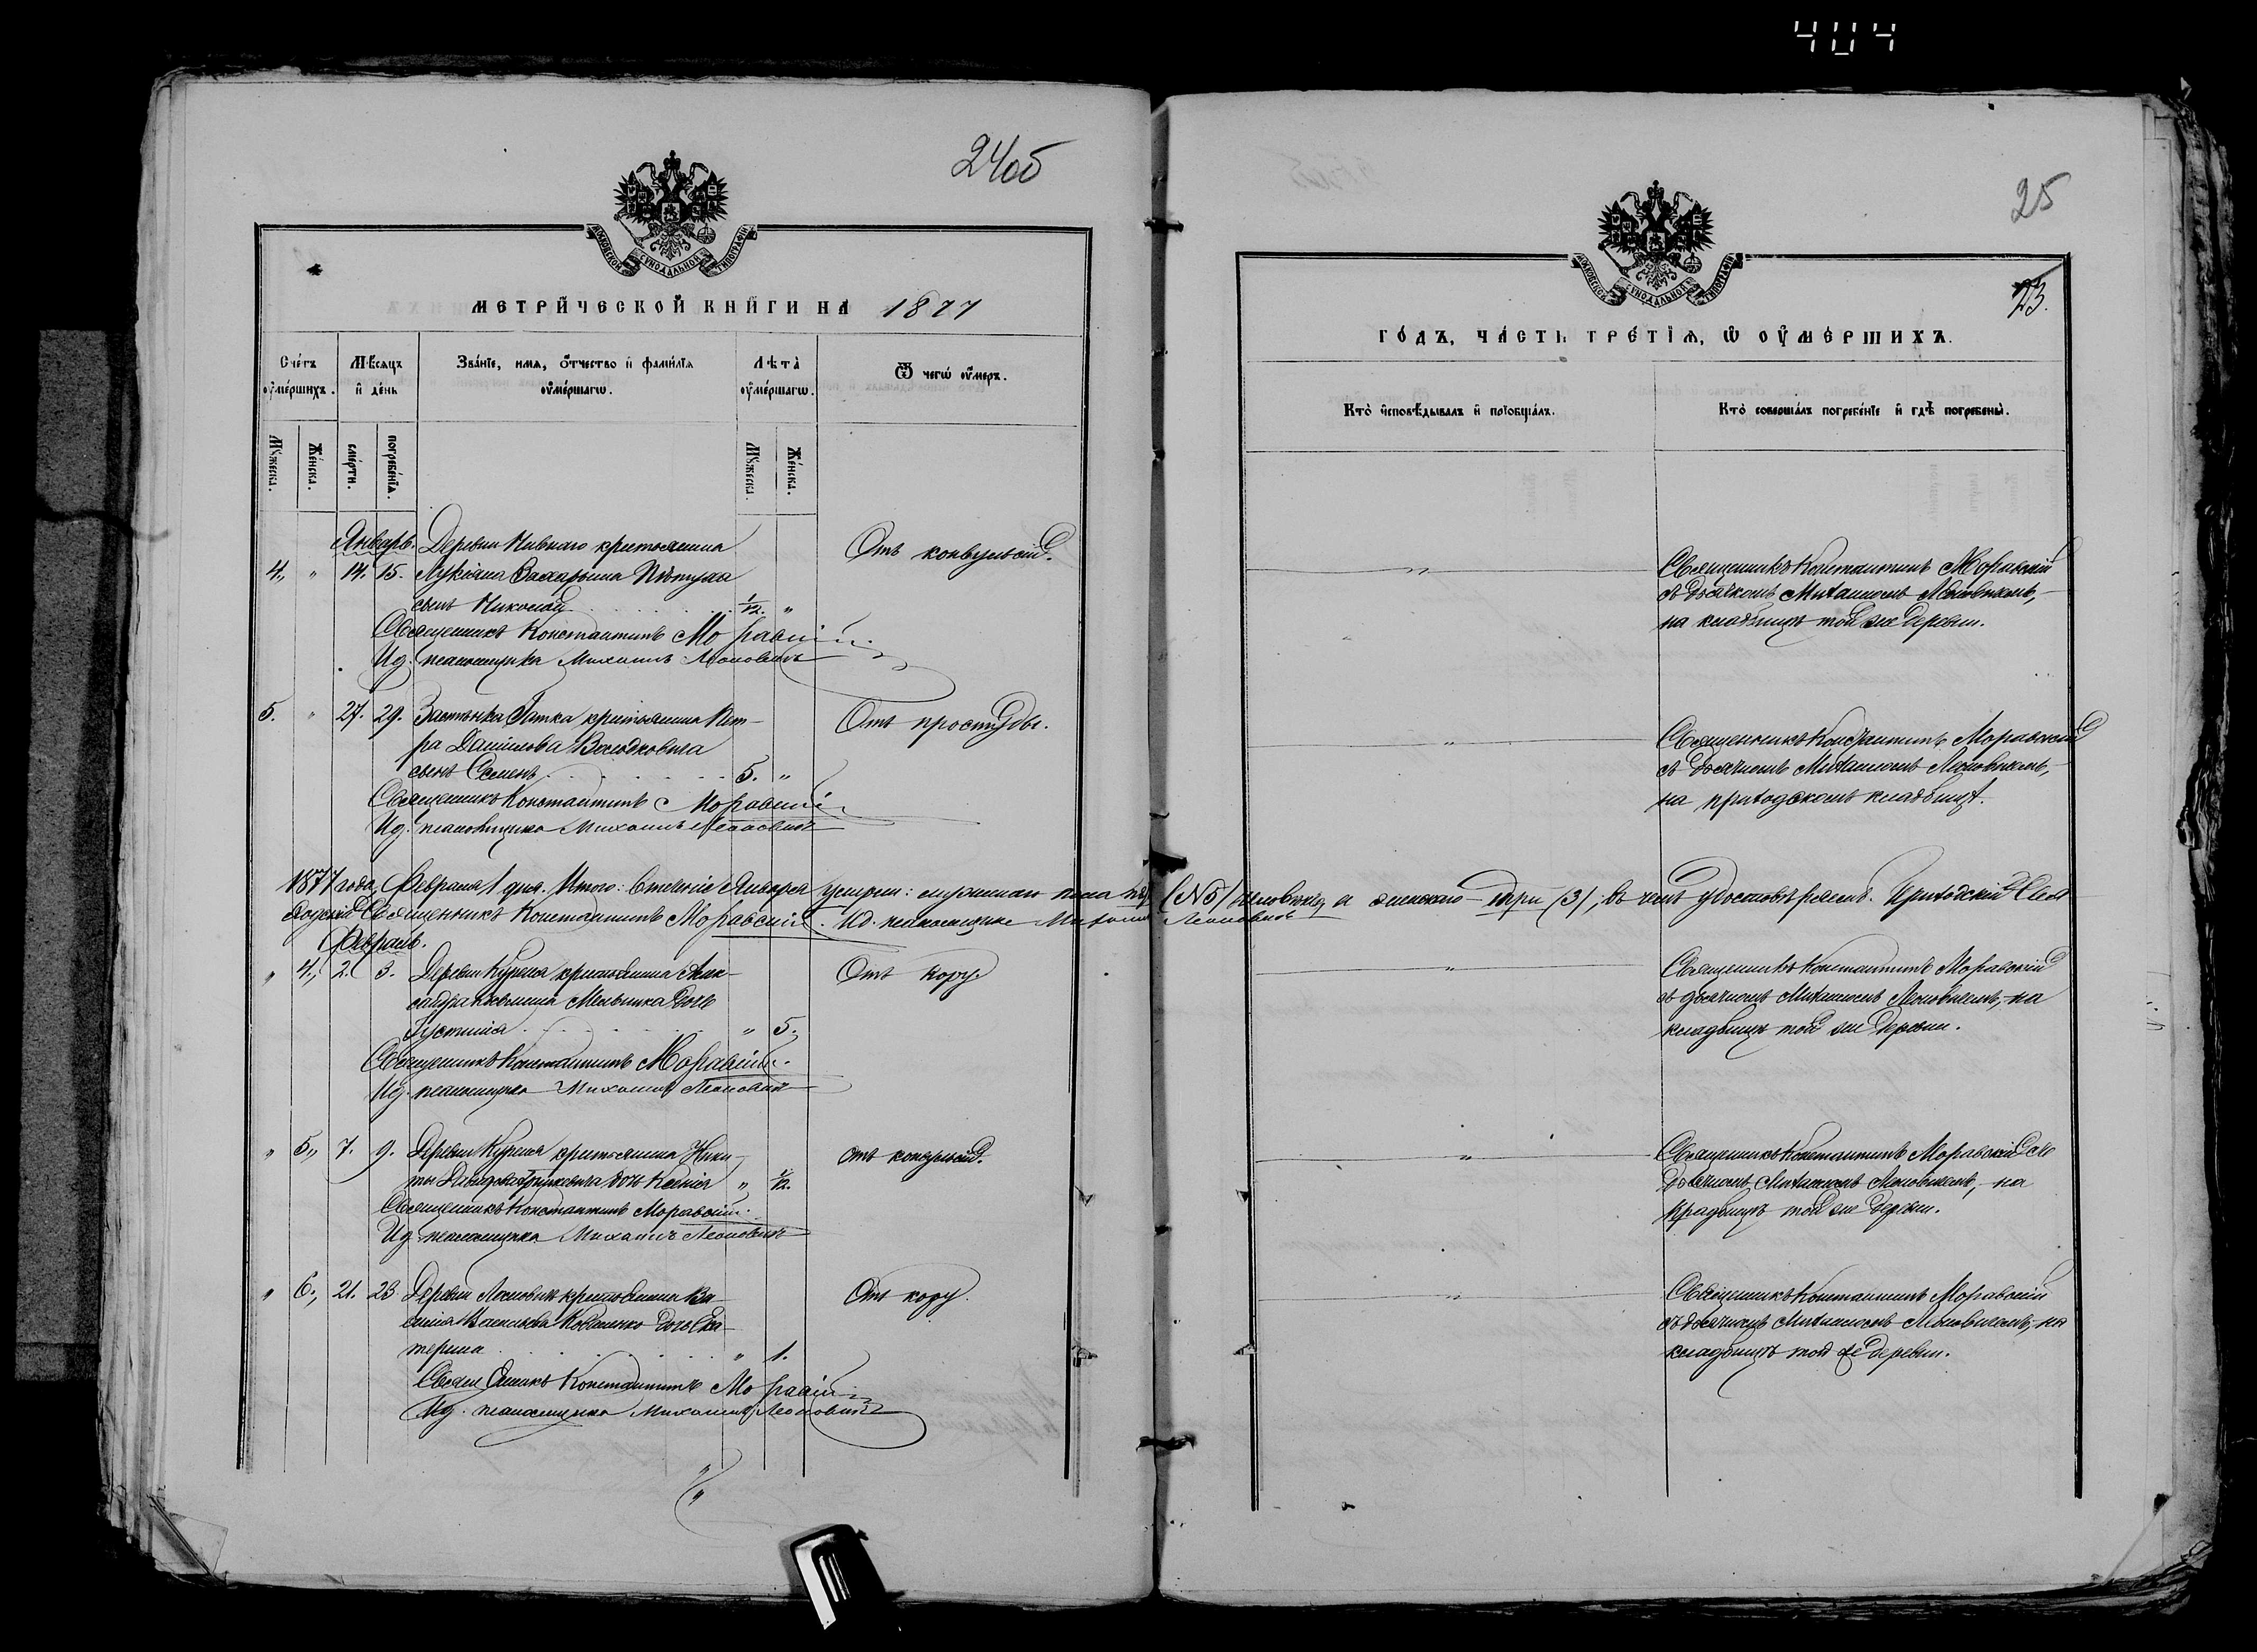 404
24об
МОСКОВСКОЙ СѴНОДАЛЬНОЙ ТИПОГРАФІИ
МЕТРИЧЕСКОЙ КНИГИ НА 1877
Счетъ умершихъ.
Мѣсяцъ и день
Званіе, имя, отчество и фамилія умершагѡ.
Лѣта умершагѡ.
Ѿ чегѡ умеръ.
Мужеска.
Женска.
смерти.
погребенія.
Мужеска.
Женска.
Январь. Деревни Нивнаго крестьянина Отъ конвульсій.
4., " 14. 15. Лукіана Захарьина Пѣтуха
сынъ Николай 1/12. "
Священникъ Константинъ Моравскій
Ид. псаломщика Михаилъ Леоновичъ
5. " 27. 29. Застѣнка Гатка крестьянина Пет- Отъ простуды.
ра Даніилова Володковича
сынъ Семенъ 5. "
Священникъ Константинъ Моравскій
Ид. псаломщика Михаилъ Леоновичъ
1877 года, Февраля 1 дня. Итого: въ теченіе Января умерло: мужескаго пола пять (№5) человѣкъ, а женскаго - три (3); въ чемъ удостовѣряемъ. Приходскій Свя
Священникъ Константинъ Моравскій. Ид. псаломщика Михаилъ Леоновичъ
Февраль.
" 4., 2. 3. Деревни Курена крестьянина Алек- Отъ кору
сандра Мельника дочь
Іустинія " 5.
Священникъ Константинъ Моравскій.
Ид. псаломщика Михаилъ Леоновичъ
" 5., 7. 9. Деревни Курена крестьянина Ники- отъ конвульсій.
ты дочь Ксенія " 1/12.
Священникъ Константинъ Моравскій.
Ид. псаломщика Михаилъ Леоновичъ
" 6., 21. 23 Деревни крестьянина Ва- Отъ кору.
силія Васильева Коваленко дочь Ека-
терина " 1.
Священникъ Константинъ Моравскій
Ид. псаломщика Михаилъ Леоновичъ
25
МОСКОВСКОЙ СѴНОДАЛЬНОЙ ТИПОГРАФІИ
23.
ГОДЪ, ЧАСТЬ ТРЕТІЯ, Ѡ УМЕРШИХЪ.
Кто исповѣдывалъ и пріобщалъ.
Кто совершалъ погребеніе и гдѣ погребены.
" Священникъ Константинъ Моравскій
съ дьячкомъ Михаиломъ Леоновичемъ,
на кладбищѣ той же деревни.
" Священникъ Константинъ Моравскій
съ дьячкомъ Михаиломъ Леоновичемъ,
на приходскомъ кладбищѣ.
" Священникъ Константинъ Моравскій
съ дьячкомъ Михаиломъ Леоновичемъ, на
кладбищѣ той же деревни.
" Священникъ Константинъ Моравскій съ
дьячкомъ Михаиломъ Леоновичемъ, на
кладбищѣ той же деревни.
" Священникъ Константинъ Моравскій
съ дьячкомъ Михаиломъ Леоновичемъ, на
кладбищѣ той же деревни.